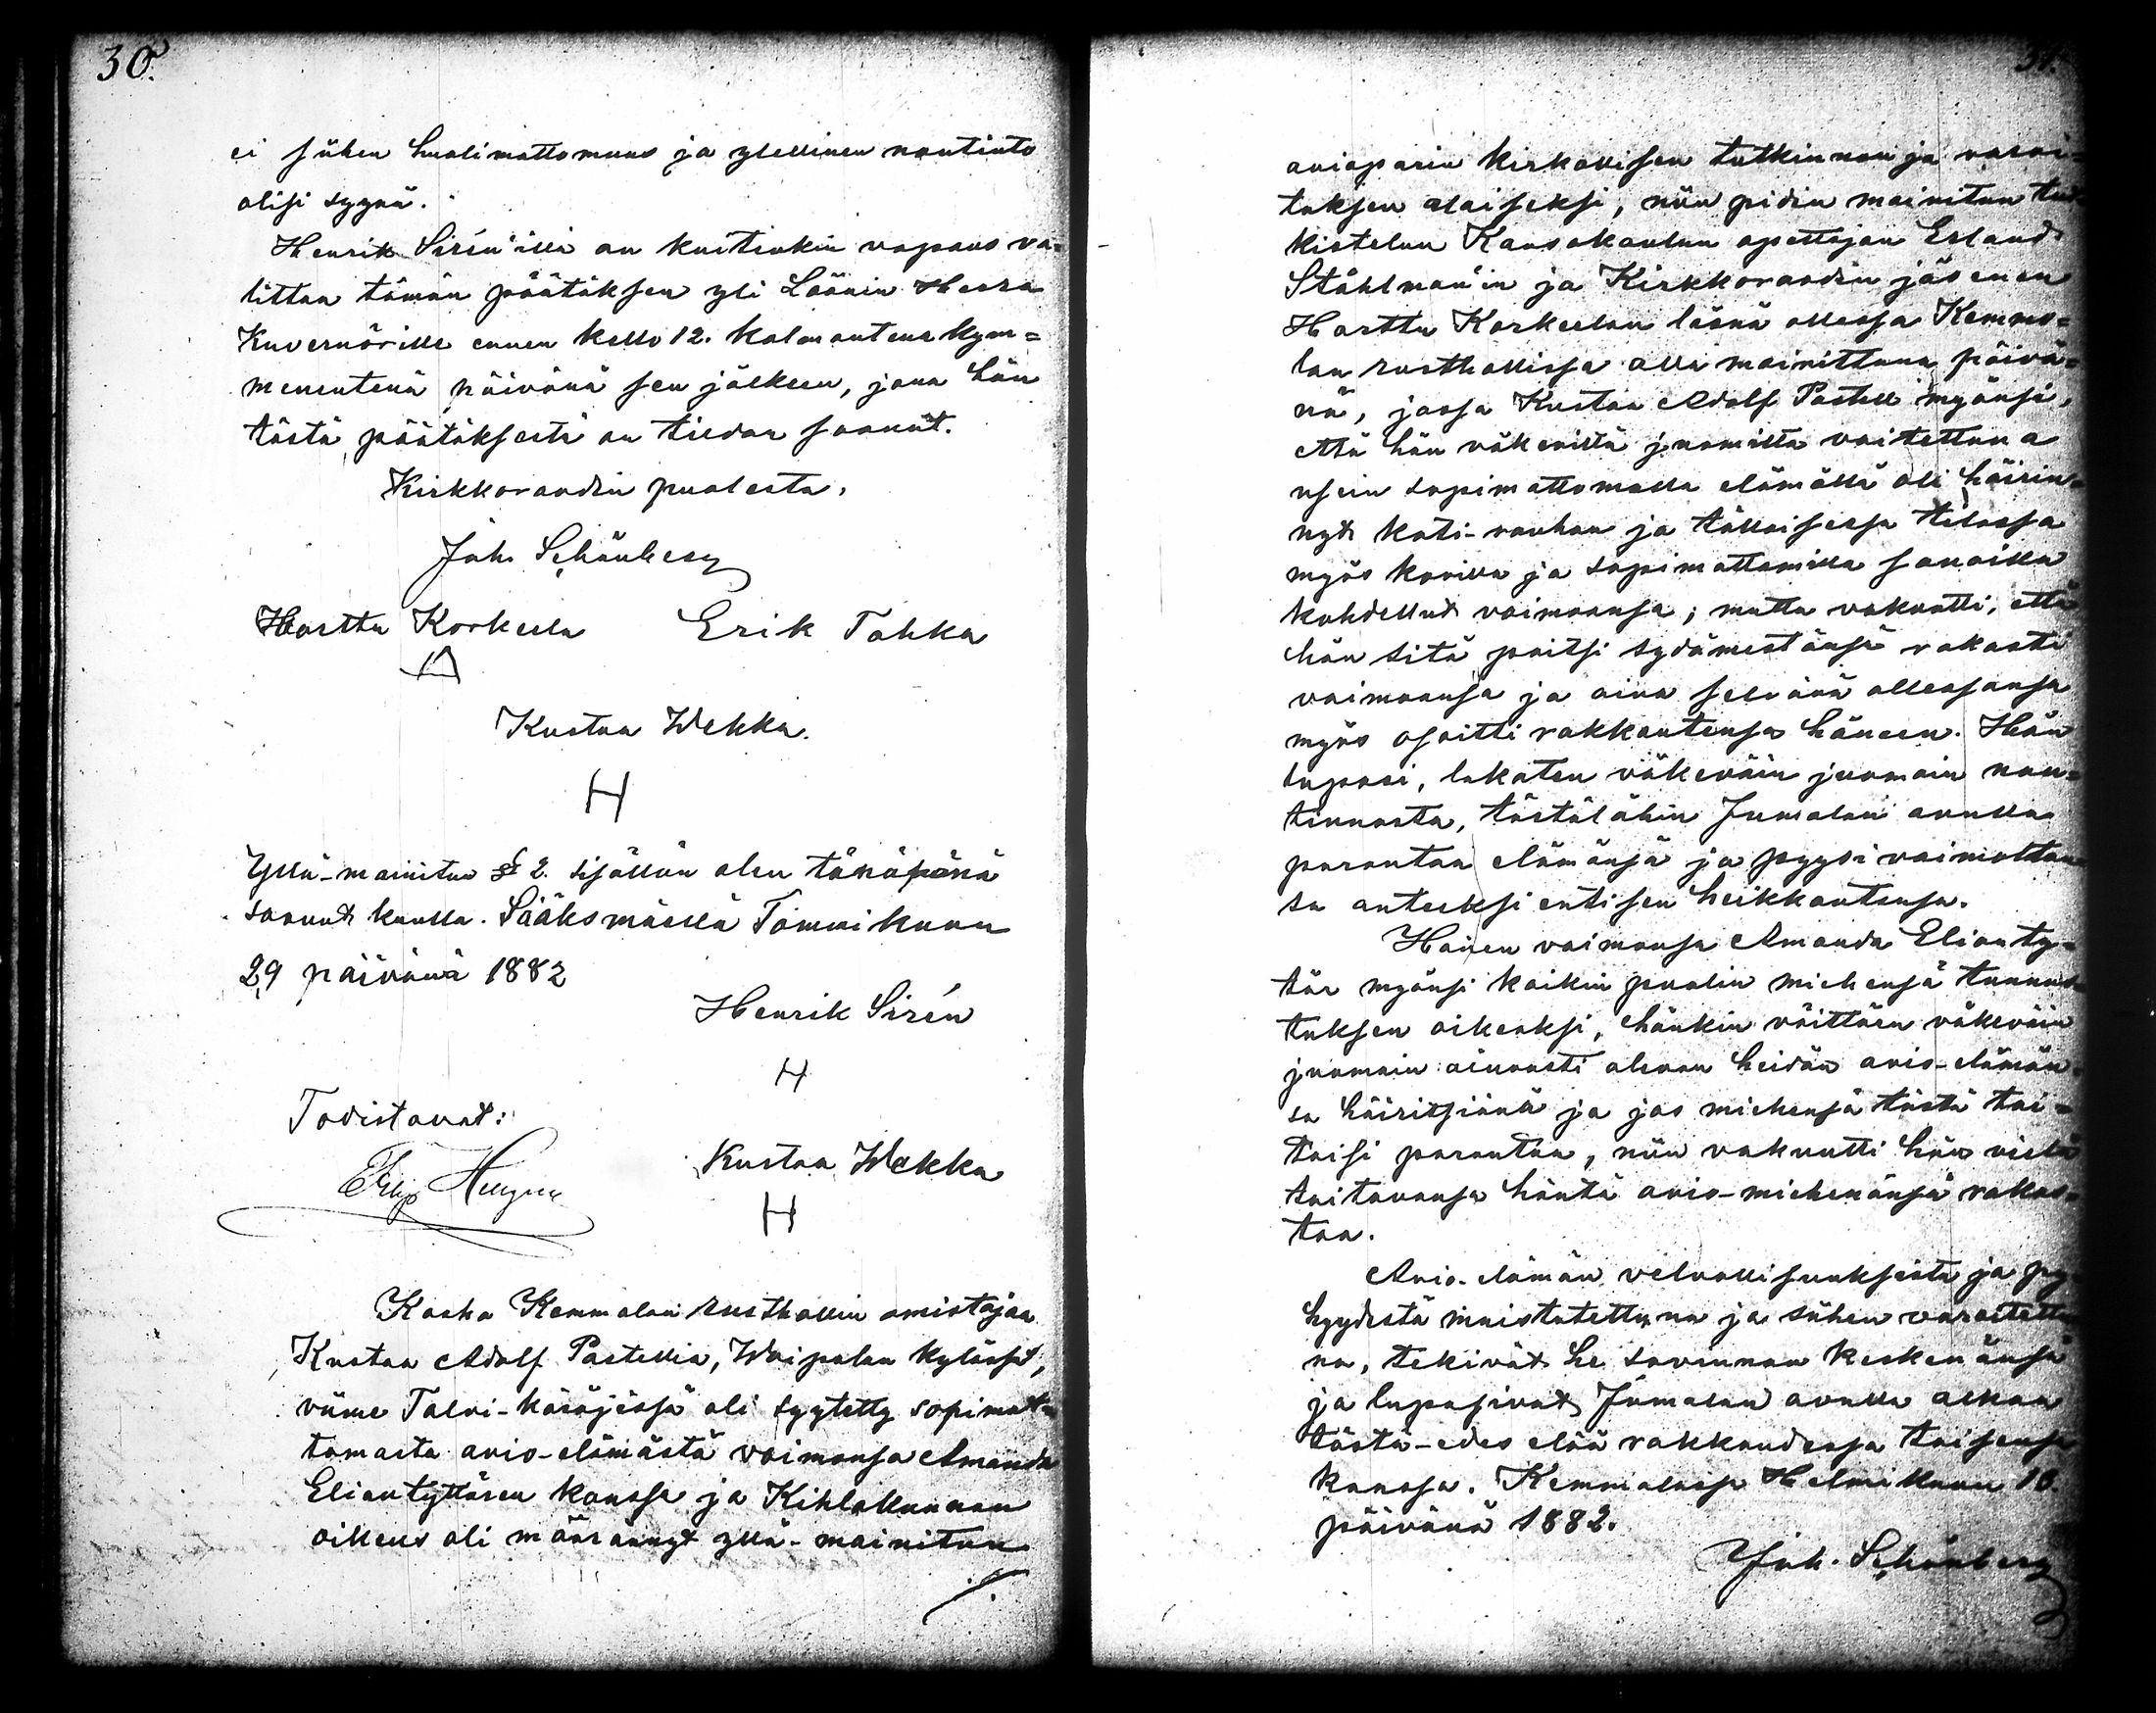 30.
ei siihen huolimattomuus ja ylellinen nautinto
olisi syynä.
Henrik Sirén'illä on kuitenkin vapaus va=
littaa tämän päätöksen yli Läänin Herra
Kuvernörille ennen kello 12. kolmantena kym=
menentenä päivänä sen jälkeen, jona hän
tästä päätöksestä on tiedon saanut.
Kirkkoraadin puolesta,
Joh. Schönberg
Harttu Korkeela Erik Tahka
Kustaa Wekka.
H
Yllä-mainitun § 2. sisällön olen tänäpänä
saanut kuulla. Sääksmäellä Tammikuun
29 päivänä 1882
Henrik Sirén
H
Todistavat:
Kustaa Wekka
H
Koska Kemmolan rusthollin omistajaa
Kustaa Adolf Pastellia, Waipalan kylässä,
viime Talvi-käräjissä oli syytetty sopimat=
tomasta avio-elämästä vaimonsa Amanda
Eliantyttären kanssa ja Kihlakunnan
oikeus oli määrännyt yllä-mainitun
./.
31.
avioparin kirkollisen tutkinnon ja varoi=
tuksen alaiseksi, niin pidin mainitun tut=
kistelun Kansakoulun opettajan Erland
Ståhlman'in ja Kirkkoraadin jäsenen
Harttu Korkeelan läsnä ollessa Kemmo=
lan rusthollissa alla mainittuna päivä=
nä, jossa Kustaa Adolf Pastell myönsi,
että hän väkevillä juomilla voitettuna
usein sopimattomalla elämällä oli häirin=
nyt koti-rauhan ja tällaisessa tilassa
myös kovilla ja sopimattomilla sanoilla
kohdellut vaimoansa; mutta vakuutti, että
hän sitä paitsi sydämestänsä rakasti
vaimoansa ja aina selvänä ollessansa
myös osoitti rakkautensa häneen. Hän
lupasi, lakaten väkeväin juomain nau=
tinnosta, tästälähin Jumalan avulla
parantaa elämänsä ja pyysi vaimoltan=
sa anteeksi entisen heikkoutensa.
Hänen vaimonsa Amanda Elianty=
tär myönsi kaikin puolin miehensä tunnus=
tuksen oikeaksi, hänkin väittäen väkeväin
juomain ainoasti olevan heidän avio-elämän=
sä häiritsiänä ja jos miehensä tästä tai=
taisi parantaa, niin vakuutti hän vielä
taitavansa häntä avio-miehenänsä rakas=
taa.
Avio-elämän velvollisuuksista ja py=
hyydestä muistutettuna ja siihen varoitettu=
na, tekivät he sovinnon keskenänsä
ja lupasivat Jumalan avulla alkaa
tästä-edes elää rakkaudessa toisensa
kanssa. Kemmolassa Helmikuun 10.
päivänä 1882.
Joh. Schönberg